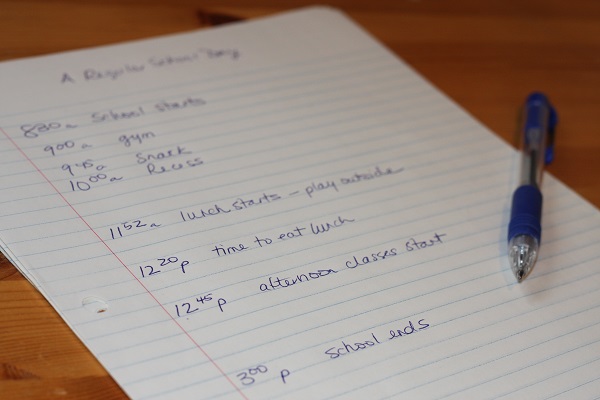 A Regular School Day
8³⁰a School starts
9⁰⁰a gym
9⁴⁵a Snack
10⁰⁰a Recess
11⁵²a lunch starts - play outside
12²⁰p time to eat lunch
12⁴⁵p afternoon classes start
3⁰⁰p school ends